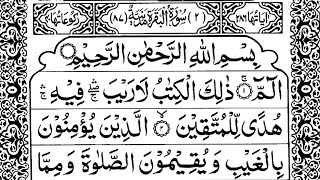 اٰیَاتُهَا ۲۸۶ (۲) سُوْرَةُ الْبَقَرَةِ مَدَنِیَّةٌ (۸۷) رُكُوْعَاتُهَا ۴۰
بِسْمِ اللّٰهِ الرَّحْمٰنِ الرَّحِيْمِ
الٓمّٓ ۚ ۝۱ ذٰلِكَ الْكِتٰبُ لَا رَيْبَ ۛۖ فِيْهِ ۛۚ
هُدًى لِّلْمُتَّقِيْنَ ۝۲ الَّذِيْنَ يُؤْمِنُوْنَ
بِالْغَيْبِ وَيُقِيْمُوْنَ الصَّلٰوةَ وَمِمَّا